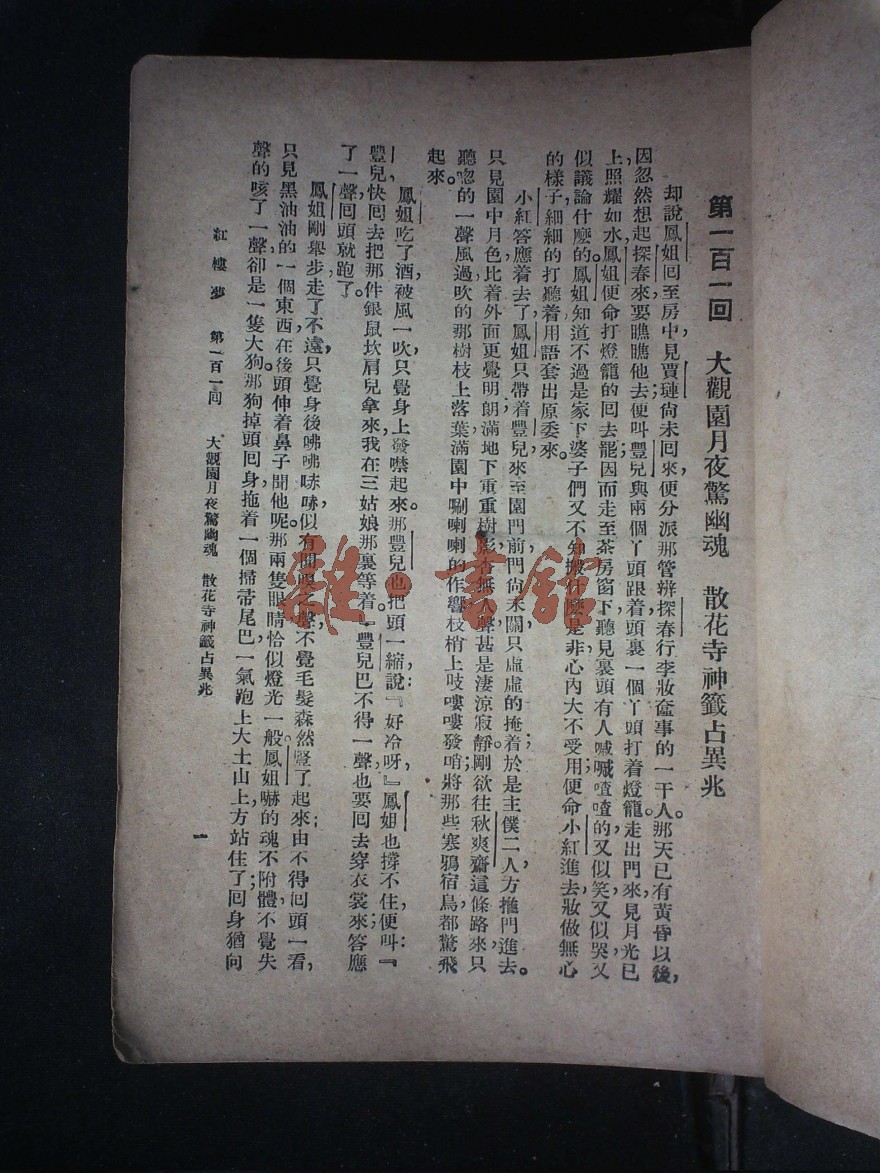 第一百一回　大觀園月夜驚幽魂　散花寺神籤占異兆
却說鳳姐回至房中，見賈璉尙未回來，便分派那管辦探春行李妝奩事的一干人。那天已有黃昏以後，
因忽然想起探春來，要瞧瞧他去，便叫豐兒與兩個丫頭跟着，頭裏一個丫頭打着燈籠。走出門來，見月光已
上，照耀如水，鳳姐便命打燈籠的回去罷。因而走至茶房窗下，聽見裏頭有人嘁嘁喳喳的，又似笑，又似哭，又
似議論什麼的。鳳姐知道不過是家下婆子們又不知搬什麼是非，心內大不受用，便命小紅進去，妝做無心
的樣子，細細的打聽着，用語套出原委來。
小紅答應着去了。鳳姐只帶着豐兒來至園門前，門尙未關，只虛虛的掩着。於是主僕二人方推門進去。
只見園中月色比着外面更覺明朗，滿地下重重樹影，杳無人聲，甚是淒涼寂靜。剛欲往秋爽齋這條路來，只
聽唿的一聲風過，吹的那樹枝上落葉滿園中唰喇喇的作響，枝梢上吱嘍嘍發哨，將那些寒鴉宿鳥都驚飛
起來。
鳳姐吃了酒，被風一吹，只覺身上發噤起來。那豐兒也把頭一縮，說：『好冷呀！』鳳姐也撐不住，便叫：『
豐兒快回去把那件銀鼠坎肩兒拿來，我在三姑娘那裏等着。』豐兒巴不得一聲，也要回去穿衣裳來，答應
了一聲，回頭就跑了。
鳳姐剛舉步走了不遠，只覺身後咈咈哧哧，似有聞嗅之聲，不覺毛髮森然豎了起來；由不得回頭一看，
只見黑油油的一個東西在後頭伸着鼻子聞他呢，那兩隻眼睛恰似燈光一般。鳳姐嚇的魂不附體，不覺失
聲的咳了一聲，卻是一隻大狗。那狗掉頭回身，拖着一個掃帚尾巴，一氣跑上大土山上，方站住了，回身猶向
紅樓夢　第一百一回　大觀園月夜驚幽魂　散花寺神籤占異兆　一